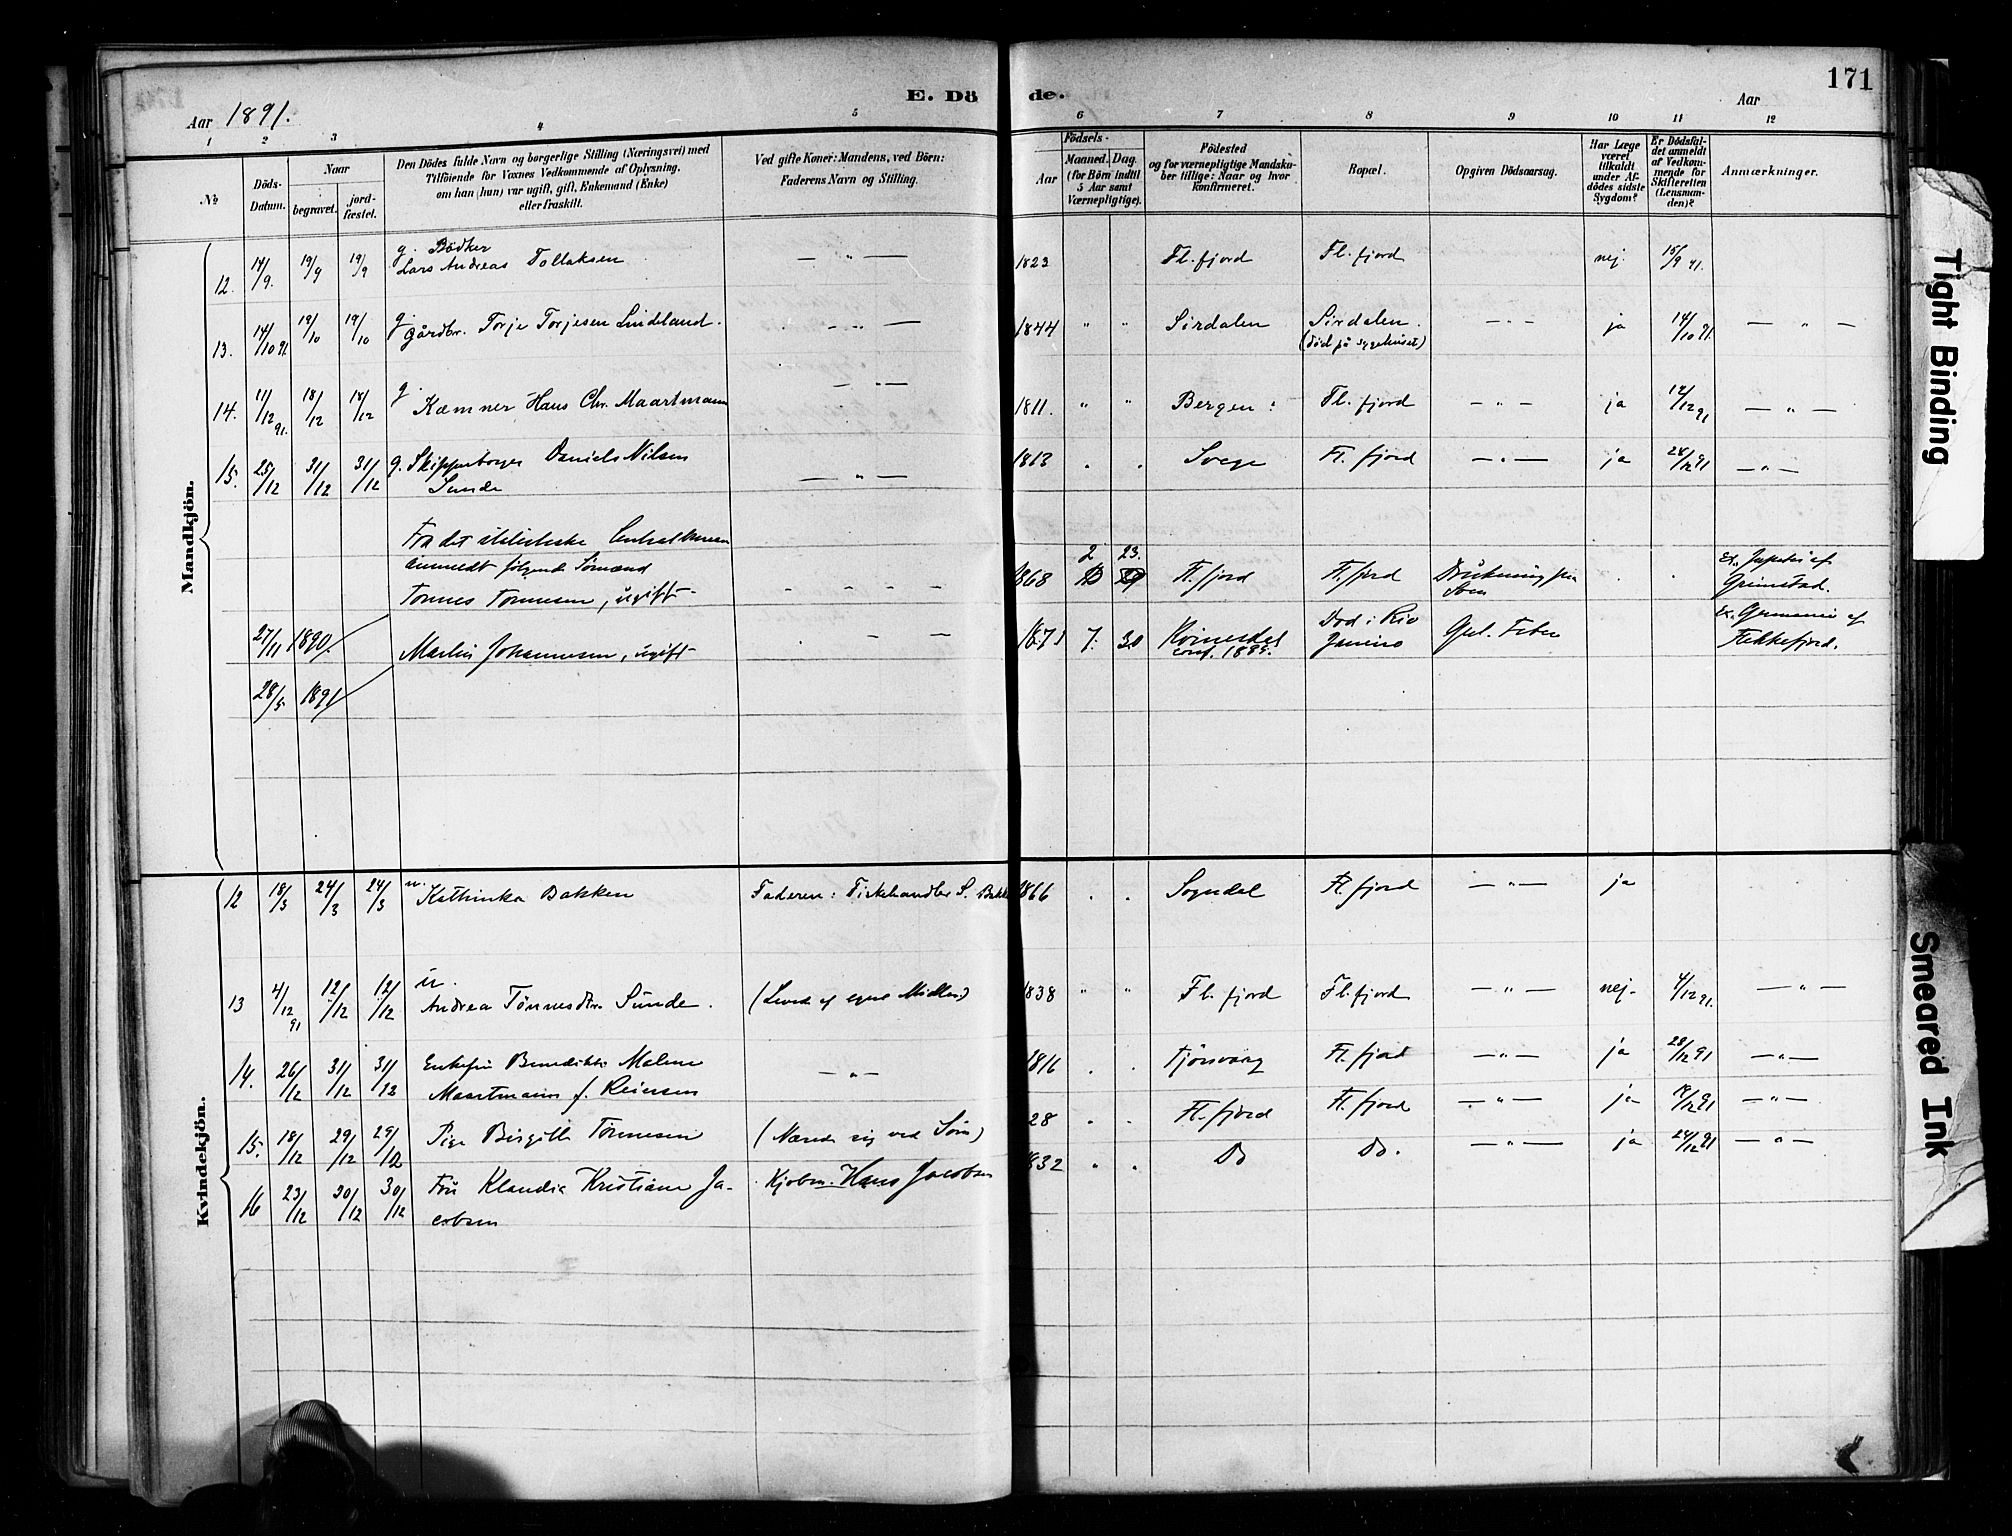 171
E. Dö de.
Aar 1891.
Aar
1 2 3 4 5 6 7 8 9 10 11 12
No
Döds-Datum.
Naar
begravet.
jord-fæstet.
Den Dödes fulde Navn og borgerlige Stilling (Næringsvei) med
Tilföiende for Voxnes Vedkommende af Oplysning,
om han (hun) var ugift, gift, Enkemand (Enke)
eller fraskilt.
Ved gifte Koner: Mandens, ved Börn:
Faderens Navn og Stilling.
Födsels-
Aar
Maaned. Dag.
(for Börn indtil
5 Aar samt
Værnepligtige).
Födested
og for værnepligtige Mandska-
ber tillige: Naar og hvor
konfirmeret.
Bopæl.
Opgiven Dödsaarsag.
Har Læge
været
tilkaldt
under Af-
dödes sidste
Sygdom?
Er Dödsfal-
det anmeldt
af Vedkom-
mende for
Skifteretten
(Lensman-
den)?
Anmærkninger.
Mandkjön.
12. 14/9. 19/9 19/9 g. Bödker
Lars Andreas Tollaksen — " — 1823 Fl.fjord Fl.fjord nej. 15/9 91.
13. 14/10 91. 19/10 19/10 g. Gårdbr. Torje Torjesen Lindeland. - " — 1844 " " Sirdalen Sirdalen. - " - ja 14/10 91. — " —
(död på sygehuset)
14. 11/12 91. 18/12 18/12 g Kæmner Hans Chr. Maartmann - " — 1811. " " Bergen: Fl.fjord - " - ja 12/12 91 — " —
15. 25/12 31/12 31/12 g. Skipperborger Daniels Nilsen
Sunde — " — 1813 " " Svege Fl.fjord — " — ja 28/12 91 — " —
Fra det statistiske
anmeldt følgende Sømænd
Tønnes Tønnesen, ugift - 1868 2 23. Fl.fjord Fl.fjord Drukning fra
af
Grimstad.
27/11 1890. Martin Johannesen, ugift - 1871 7. 30 Kvinesdal
conf. 1885. Död i Rio
Janeiro Gul. Feber ex. Germania af
Flekkefjord.
28/5 1891
Kvindekjön.
12 18/3 24/3 24/3 u. Kathinka Bakken Faderen: Fiskehandler S. Bakke 1866 " " Sogndal Fl.fjord — " — ja
13 4/12 91 12/12 12/12 u.
Andrea Tönnesdtr. Sunde. (Leved af egne Midler) 1838 " " Fl.fjord Fl.fjord — " — nej- 4/12 91. — " —
14. 26/12 31/12 31/12 Enkefru Benedikte Malene
Maartmann f. Reiersen — " — 1816 " " Tjörsvaag Fl.fjord — " — ja 28/12 91 — " —
15. 18/12 29/12 29/12 Pige Birgitte Tönnesen (Næred sig ved Söm) 28 " " Fl.fjord Fl.fjord — " — ja 19/12 91 — " —
16 23/12 30/12 30/12 Fru Klaudia Kristiane Ja-
cobsen Kjøbm. Hans Jacobsen 1832 " " Do Do. — " — ja 24/12 91 — " —
Tight Binding
Smeared Ink